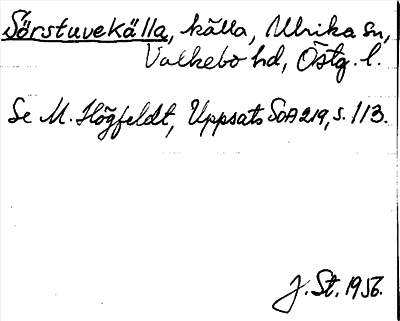 Sörstuvekälla, källa, Ulrika sn,
Valkebo hd, Östg. l.
Se M. Högfeldt, Uppsats SOA 219, s. 113.
J. St. 1956.